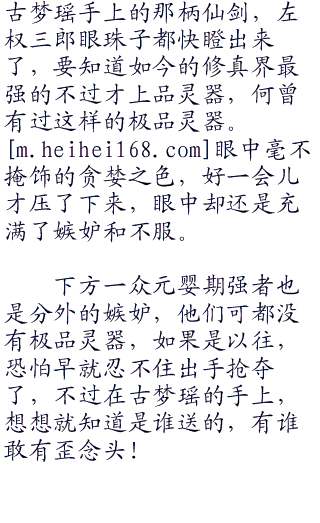 古梦瑶手上的那柄仙剑，左
权三郎眼珠子都快瞪出来
了，要知道如今的修真界最
强的不过才上品灵器，何曾
有过这样的极品灵器。
[m.heihei168.com]眼中毫不
掩饰的贪婪之色，好一会儿
才压了下来，眼中却还是充
满了嫉妒和不服。
下方一众元婴期强者也
是分外的嫉妒，他们可都没
有极品灵器，如果是以往，
恐怕早就忍不住出手抢夺
了，不过在古梦瑶的手上，
想想就知道是谁送的，有谁
敢有歪念头！